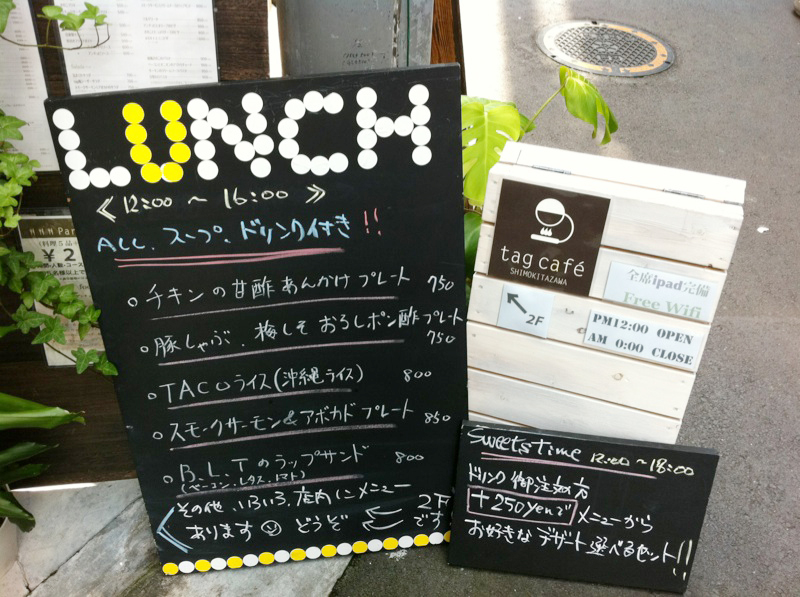 LUNCH
≪ 12:00 ~ 16:00 ≫
ALL、スープ、ドリンク付き!!
。チキンの甘酢あんかけプレート 750
。豚しゃぶ、梅しそおろしポン酢プレート 750
。TACOライス(沖縄ライス) 800
。スモークサーモン&アボカドプレート 850
。B.L.Tのラップサンド 800
(ベーコン・レタス・トマト)
その他、いろいろ、店内にメニュー
あります どうぞ
2F
です
tag café
SHIMOKITAZAWA
全席ipad完備
Free Wifi
2F
PM12:00 OPEN
AM 0:00 CLOSE
Sweets time 12:00 ~ 18:00
ドリンク御注文の方
+250yenで メニューから
お好きなデザート選べるセット!!